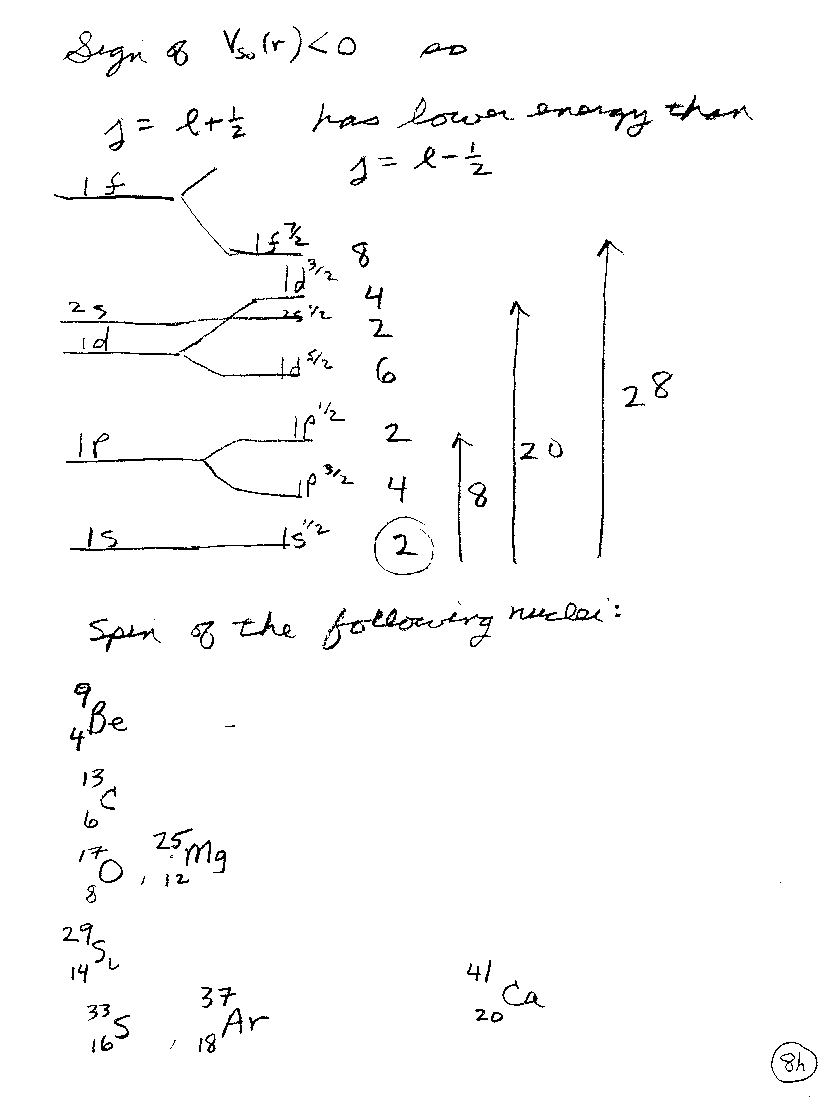 Sign of Vso(r)<0 so
j = l+1/2 has lower energy than
j = l-1/2
1f
1f 7/2 8
1d 3/2 4
2s 2s 1/2 2
1d
1d 5/2 6
28
1p 1/2 2
1p 20
1p 3/2 4
8
1s 1s 1/2 2
Spin of the following nuclei:
9 4 Be -
13 6 C
17 8 O, 25 12 Mg
29 14 Si
33 16 S, 37 18 Ar 41 20 Ca
8h